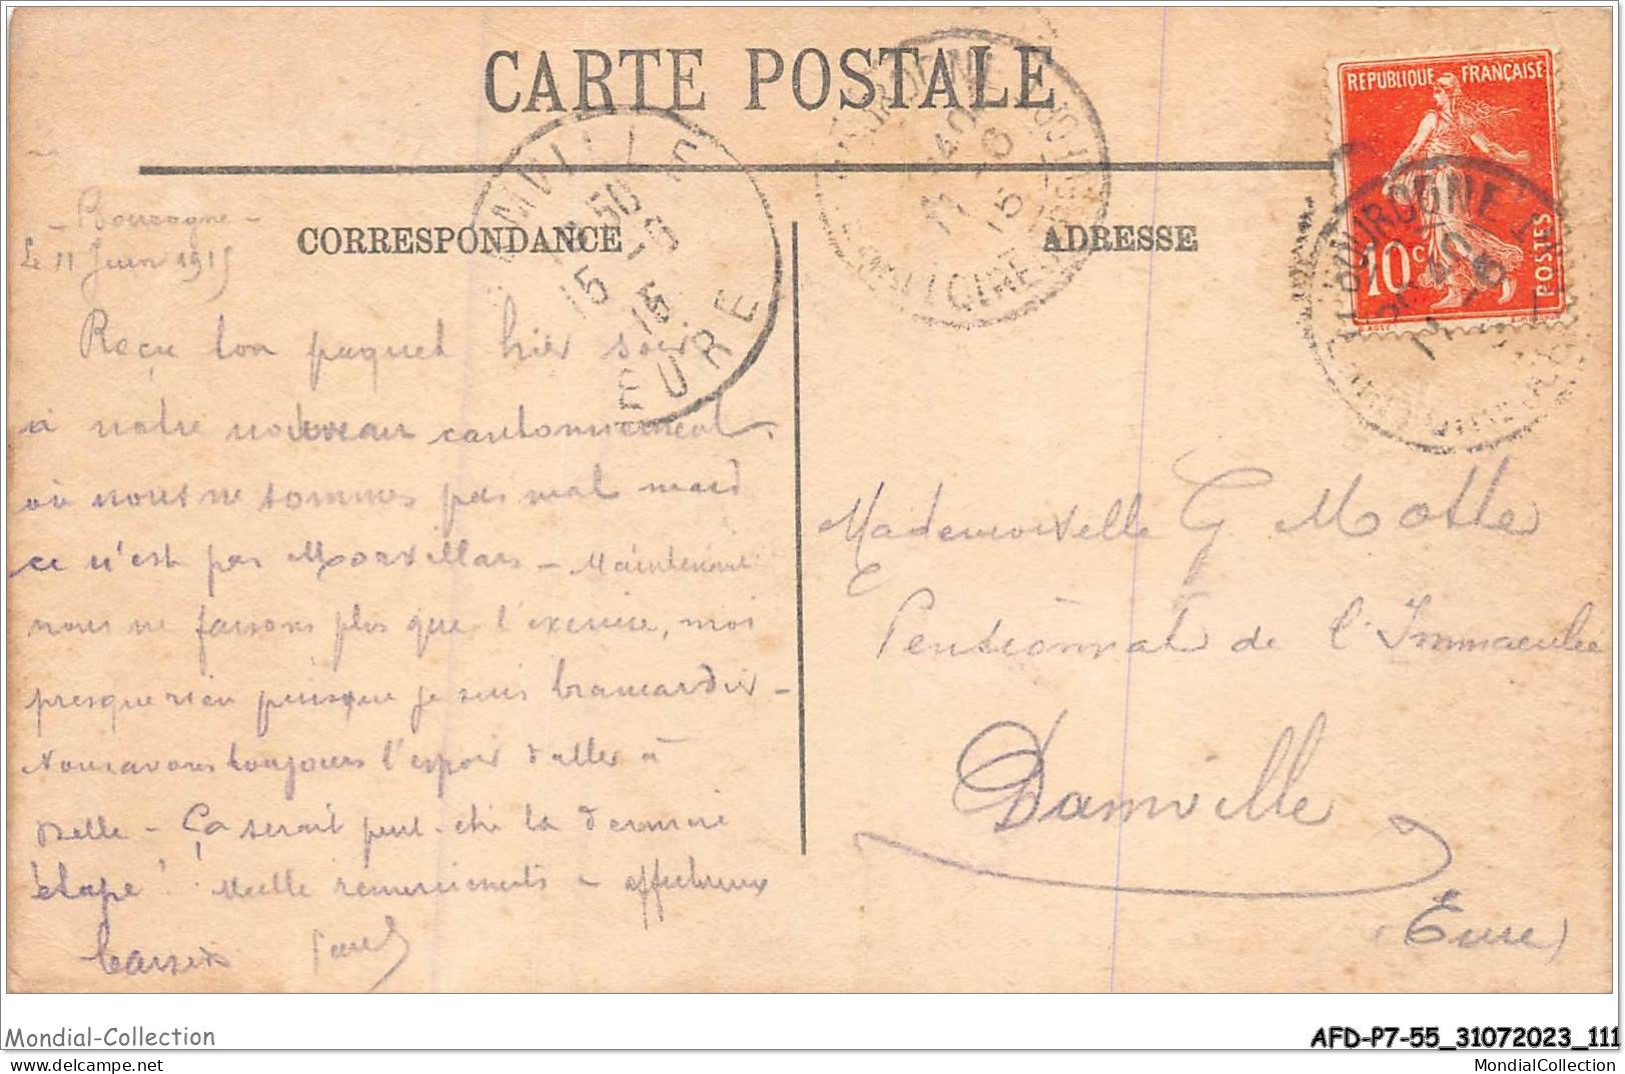 CARTE POSTALE
REPUBLIQUE FRANÇAISE
10c
POSTES
CORRESPONDANCE
ADRESSE
MVILLE
EURE
50
15 -6
15
- Bourgogne -
Le 11 Juin 1915
Reçu ton paquet hier soir
à notre nouveau cantonnement
où nous ne sommes pas mal mais
ce n'est pas Morvillars - Maintenant
nous ne faisons plus que l'exercice, moi
presque rien puisque je suis brancardier -
Nous avons toujours l'espoir d'aller à
- Ça serait peut-être la dernière
étape ! Mille remerciements - affectueux
baisers Paul
Mademoiselle G Motte
Pensionnat de l'Immaculée
Damville
(Eure)
Mondial-Collection
AFD-P7-55_31072023_111
delcampe.net
MondialCollection